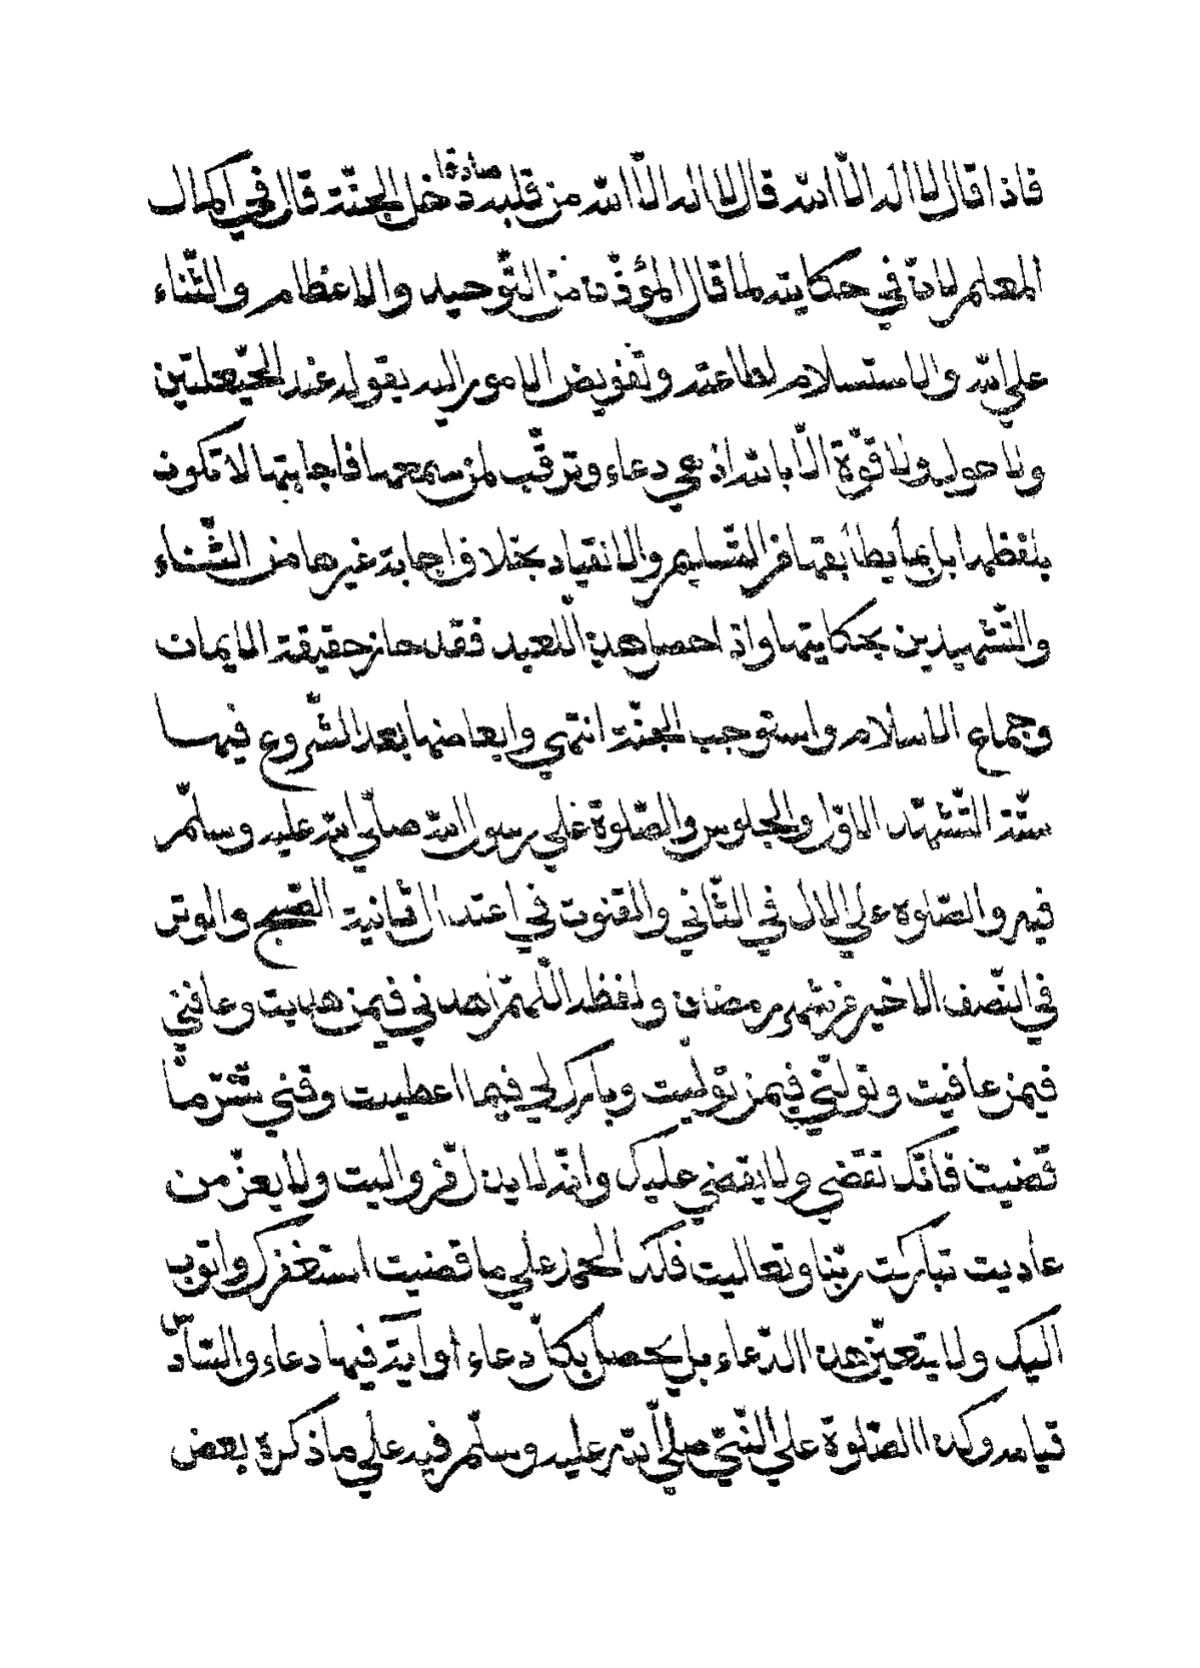 فاذا قال لا اله الا الله قال لا اله الا الله من قلبه صادقا دخل الجنّة قال في اكمال
المعلم لان في حكايته لما قال المؤذن من التّوحيد والاعظام والثّناء
علي الله والاستسلام لطاعته وتفويض الامور اليه بقوله عند الحيّعلتين
ولا حول ولا قوّة الّا بالله اذ هي دعاء وترقّب لمن سمعها فاجابتها لا تكون
بلفظها بل بما يطابقها من التّسليم والانقياد بخلاف اجابة غيرها من الثّناء
والتّشهدين بحكايتها واذا حصل هذا للعبد فقد حاز حقيقة الايمان
وجماع الاسلام واستوجب الجنّة انتهي وابعاضها بعد الشّروع فيها
ستّة التّشهّد الاوّل والجلوس والصّلوة علي رسول الله صلّي الله عليه وسلّم
فيه والصّلوة علي الال في الثّاني والقنوت في اعتدال ثانية الصّبح والوتر
في النّصف الاخير من شهر رمضان ولفظه اللّهمّ اهدني فيمن هديت وعافني
فيمن عافيت وتولّني فيمن تولّيت وبارك لي فيما اعطيت وقني شرّ ما
قضيت فانّك تقضي ولا يقضي عليك وانّه لا يذل من واليت ولا يعزّ من
عاديت تباركت ربّنا وتعاليت فلك الحمد علي ما قضيت استغفرك واتوب
اليك ولا يتعيّن هذا الدّعاء بل يحصل بكلّ دعاء او آية فيها دعاء والسّادس
قيامه وكذا الصّلوة علي النّبيّ صلّي الله عليه وسلّم فيه علي ما ذكره بعض